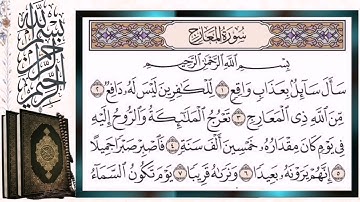 سُورَةُ المَعَارِجِ
بِسْمِ ٱللَّهِ ٱلرَّحْمَٰنِ ٱلرَّحِيمِ
سَأَلَ سَآئِلُۢ بِعَذَابٖ وَاقِعٖ ١ لِّلۡكَٰفِرِينَ لَيۡسَ لَهُۥ دَافِعٞ ٢
مِّنَ ٱللَّهِ ذِي ٱلۡمَعَارِجِ ٣ تَعۡرُجُ ٱلۡمَلَٰٓئِكَةُ وَٱلرُّوحُ إِلَيۡهِ
فِي يَوۡمٖ كَانَ مِقۡدَارُهُۥ خَمۡسِينَ أَلۡفَ سَنَةٖ ٤ فَٱصۡبِرۡ صَبۡرٗا جَمِيلًا
٥ إِنَّهُمۡ يَرَوۡنَهُۥ بَعِيدٗا ٦ وَنَرَىٰهُ قَرِيبٗا ٧ يَوۡمَ تَكُونُ ٱلسَّمَآءُ
بسم الله الرحمن الرحيم